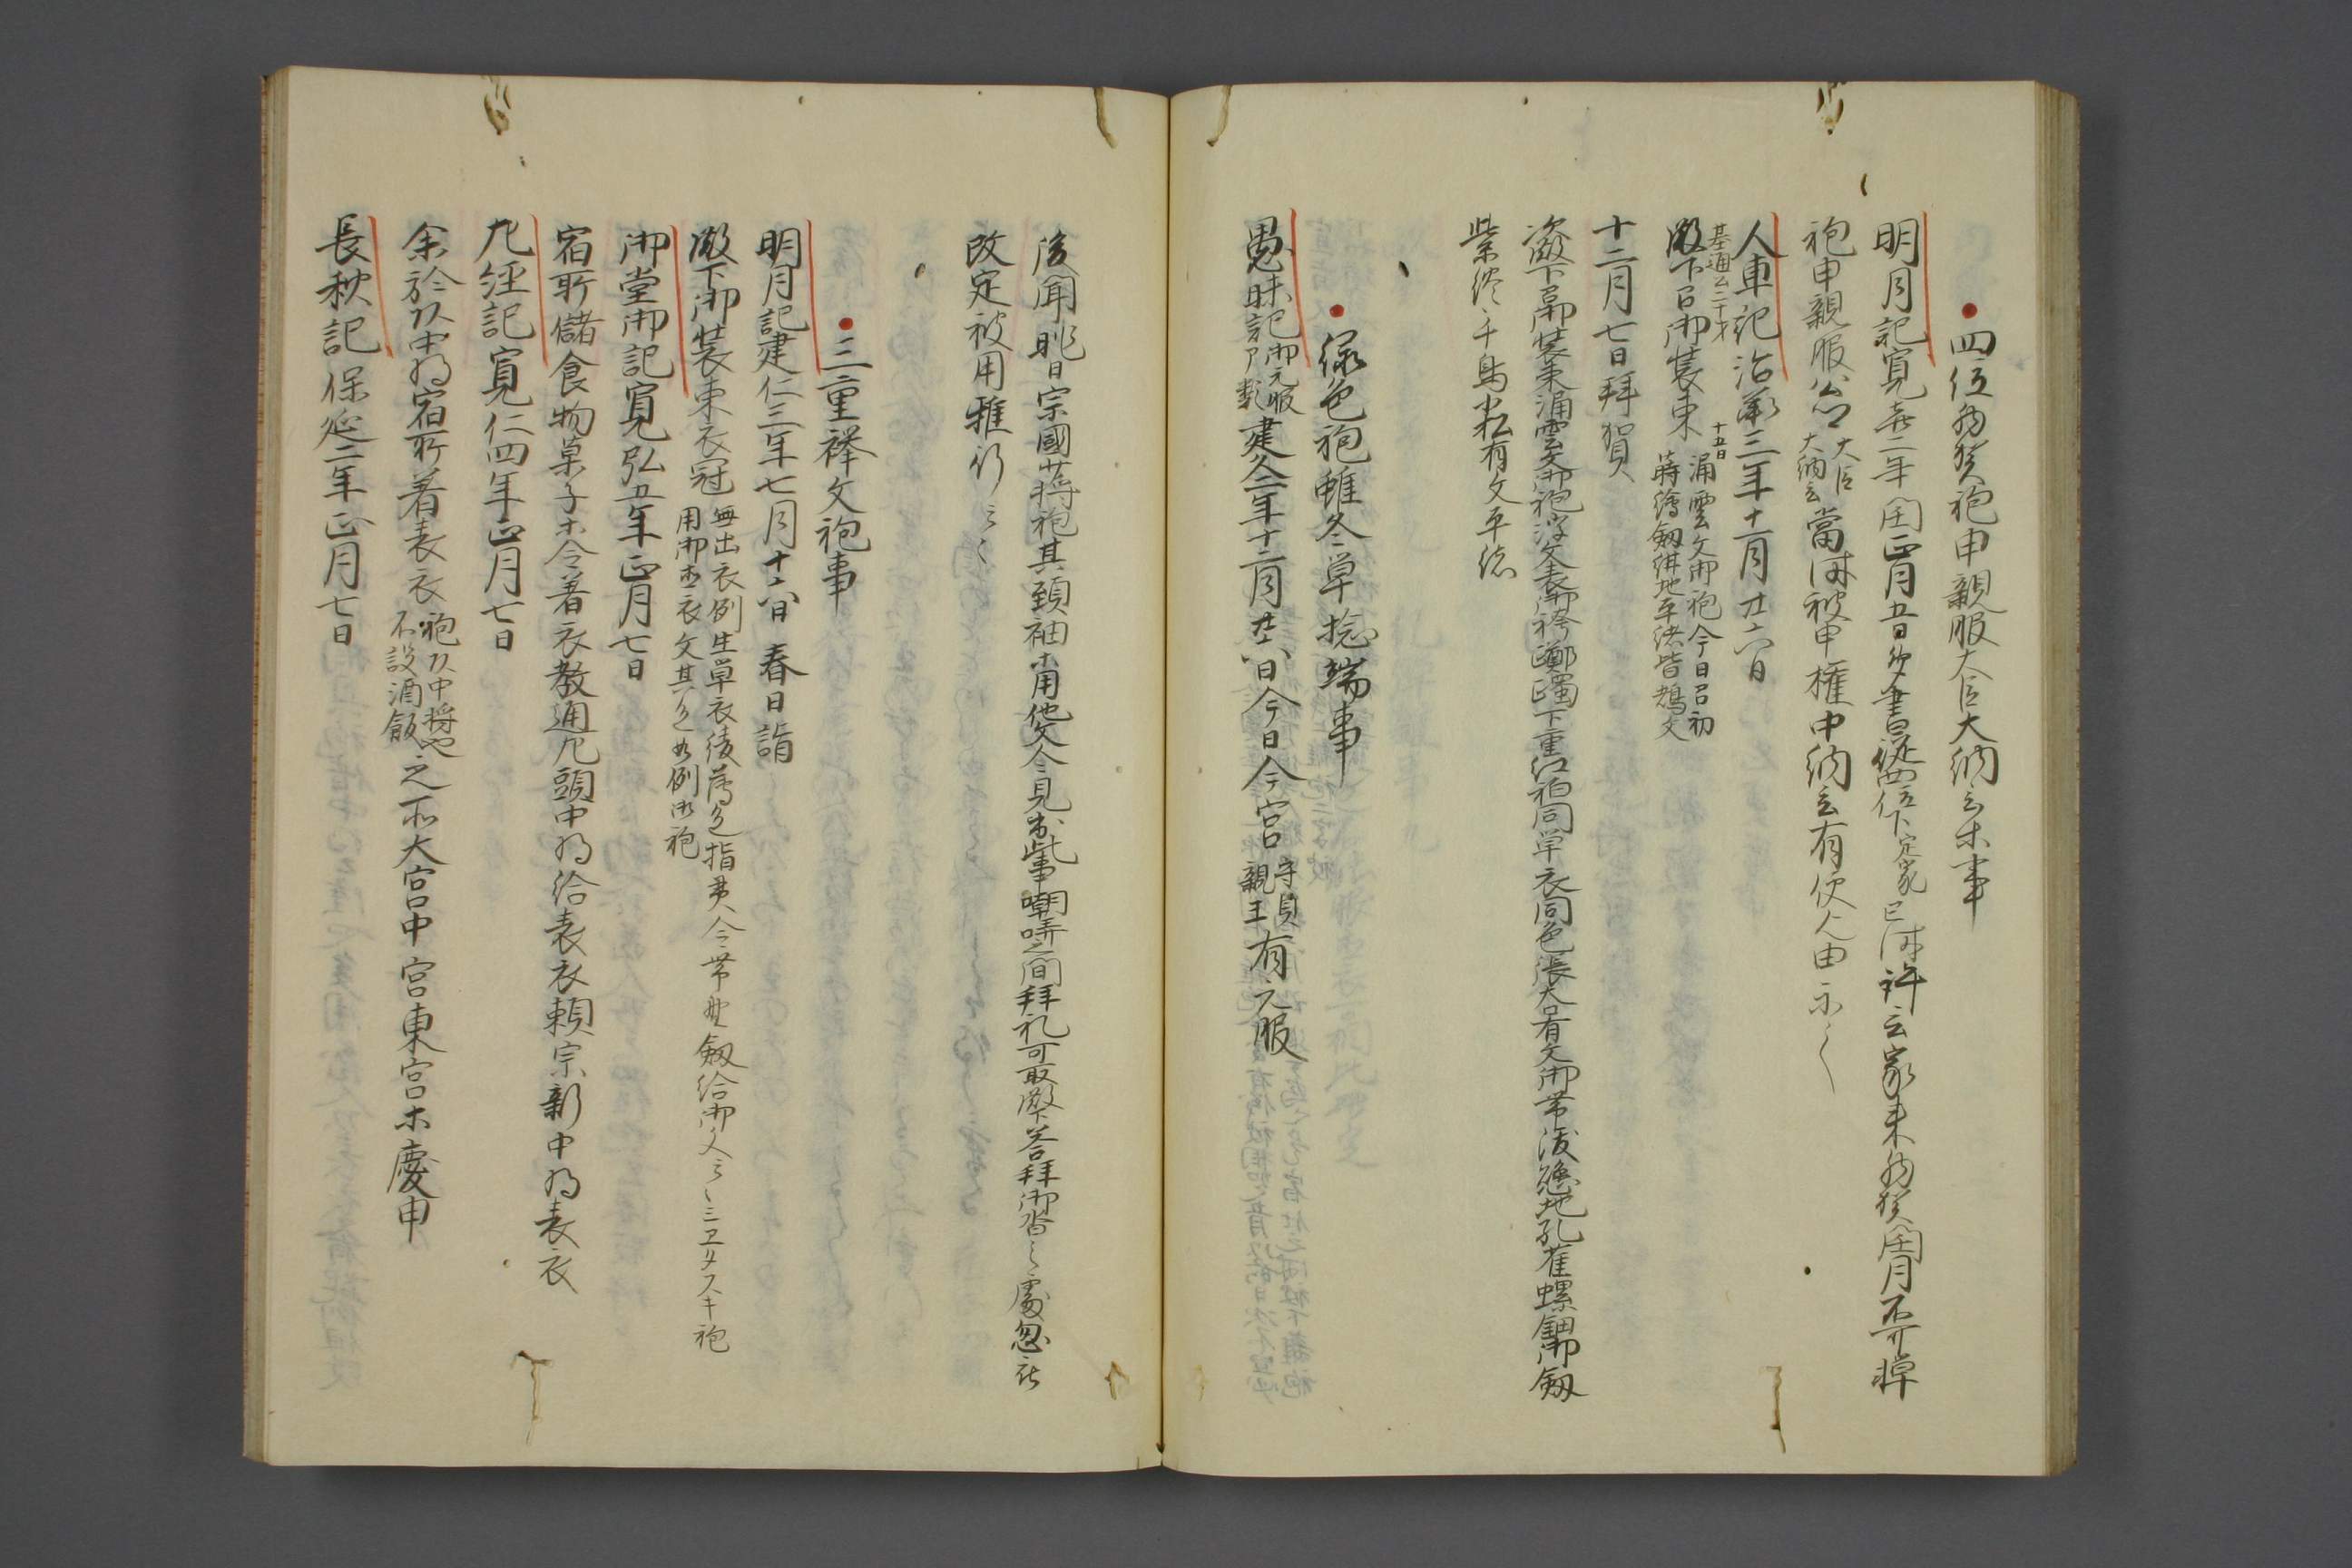 四位拗袍申親服大臣大納言木事
明月記寛喜二年閏正月五日夕書従四位下定家已時許云家来拗閏月
袍申親服公 大臣大納言 當時被申権中納言有使人由示〻
人車記治承三年十一月廿六日
殿下召御装束 涌雲文御袍今日召初蒔繪釼紺地平緒皆鵄文
基通公二十才
十五日
十二月七日拜賀
殿下召御装束涌雲文御袍浮文表御袴躑躅下重打衵同單衣同色張大口有文御帯紺地孔雀螺鈿御釼
紫緂千鳥有文平緒
緑色袍雖冬單捻端事
愚昧記 御元服部類 建久二年十二月廿六日今日今宮 守貞親王 有元服
後聞昨日宗國蒋袍其頸袖木用他文令見出此事嘲哢之間拜礼可取殿下答拜御沓之處忽
改定被用雅行云〻
三重襷文袍事
明月記建仁三年七月十六日 春日詣
殿下御装束衣冠 無出衣例生單衣綾薄色指貫用御直衣文其色如例御袍 令帯野釼給御文云〻ミヱタスキ袍
御堂御記寛弘五年正月七日
宿所儲食物菓子木令着衣教通左頭中将給表衣頼宗新中将表衣
左経記寛仁四年正月七日
余於頭中将宿所着表衣 袍頭中将也不設酒飯 之所大宮中宮東宮木慶申
長秋記保延二年正月七日